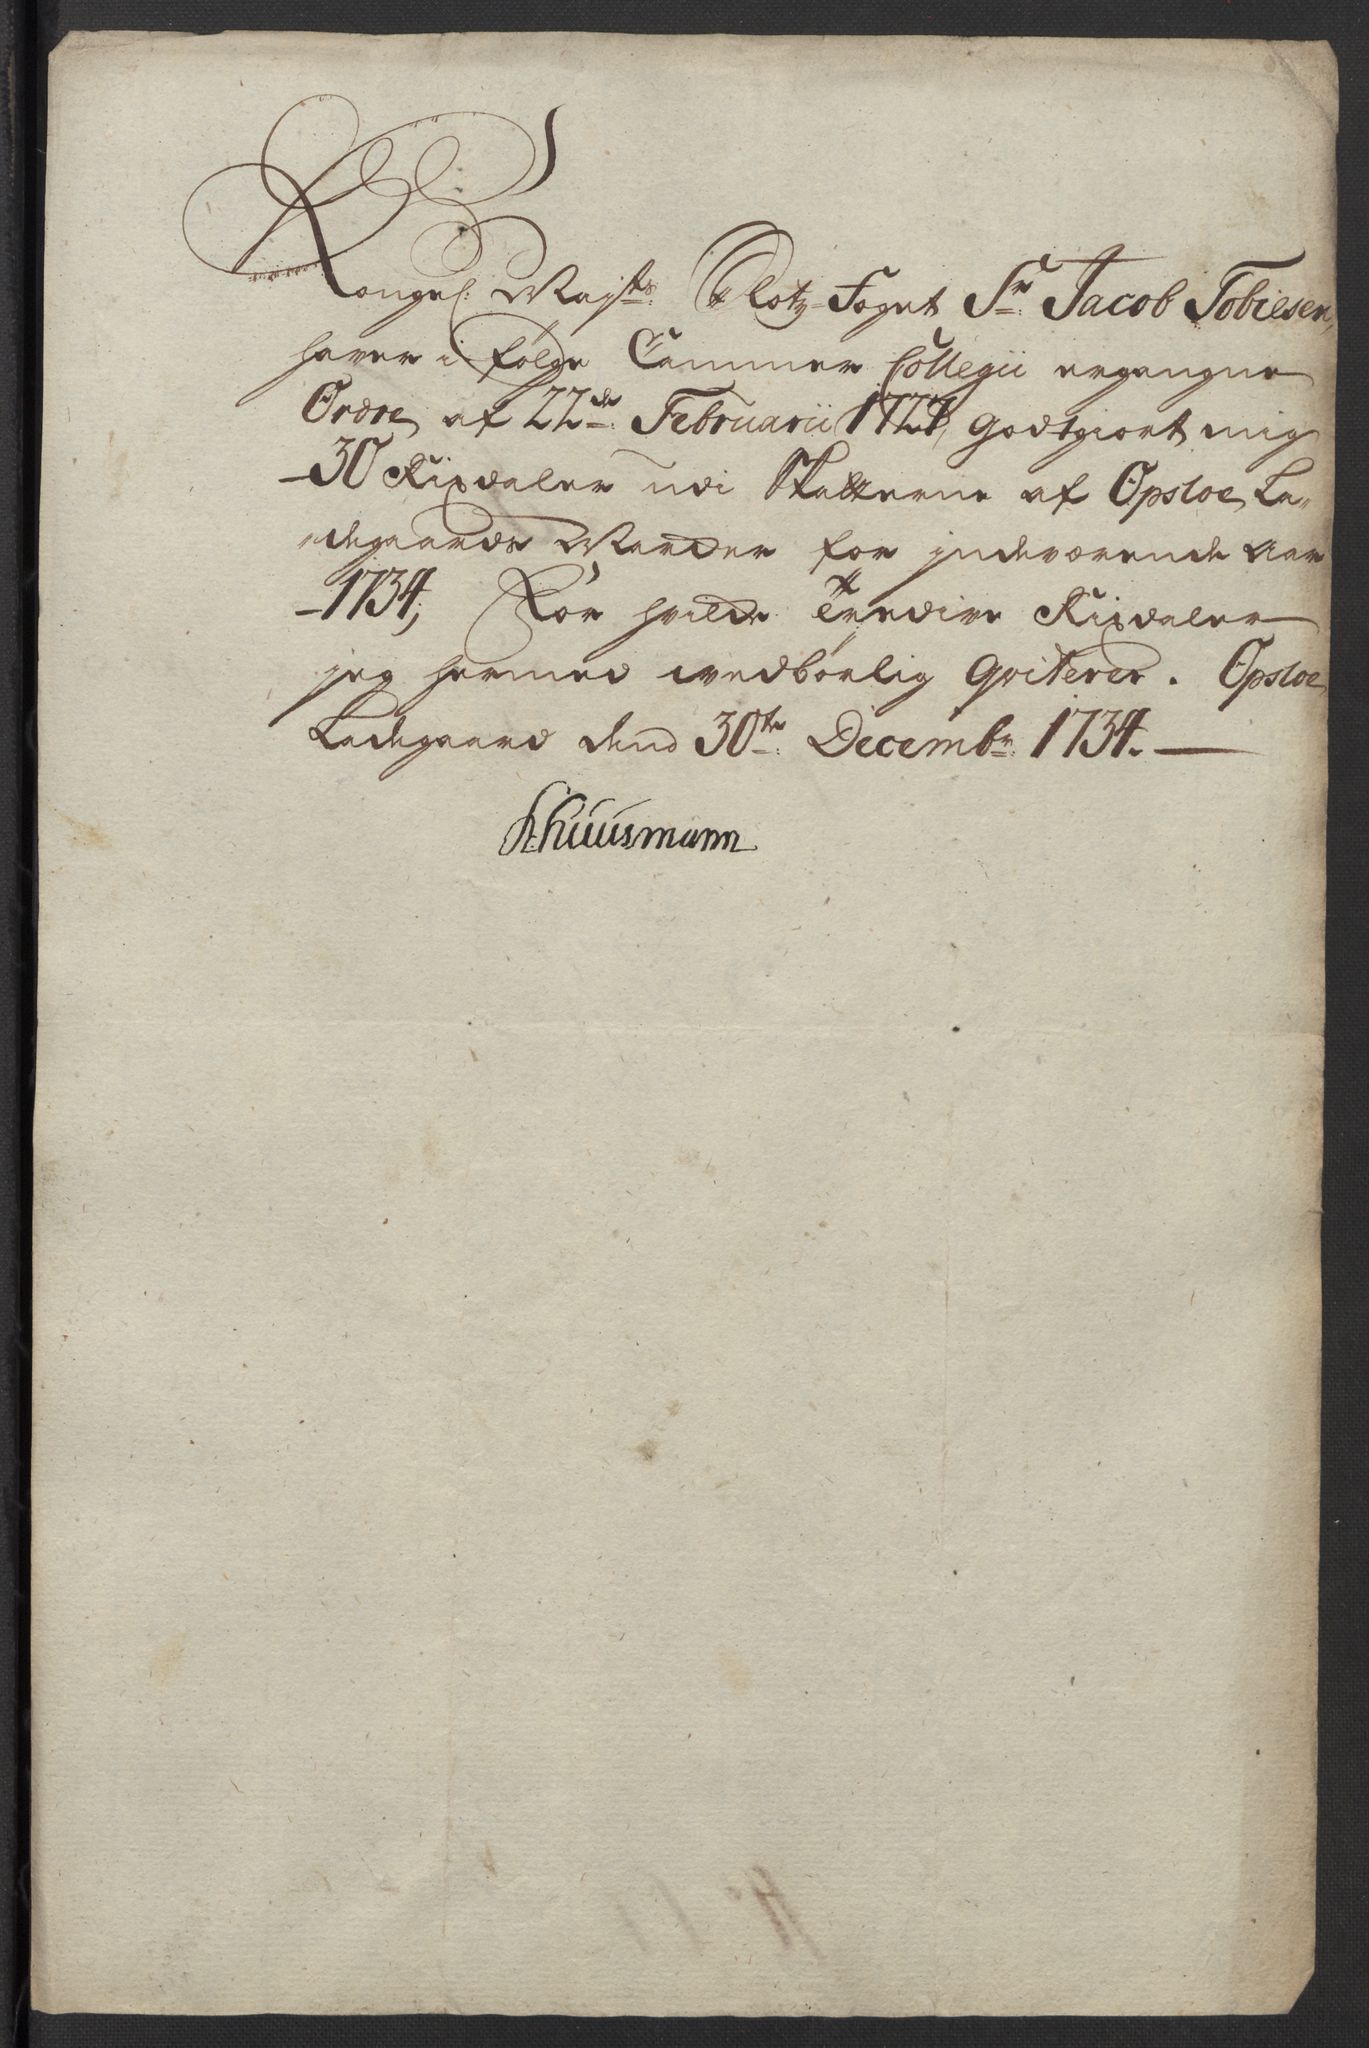 Kongel: Mayts: Slotz-Foget Sr: Jacob Tobiesen,
haver i følge Cammer Collegii ergangne
Ordre af 22de: Februarii 1727, godtgiort mig
30 Rixdaler udi Skatterne af Opsloe La-
degaards Marcker for indeværende Aar
1734, For hvilde Tredive Rixdaler
jeg hermed vedbørlig Qviterer. Opsloe
Ladegaard dend 30te: Decembr: 1734.
K: Huusmann